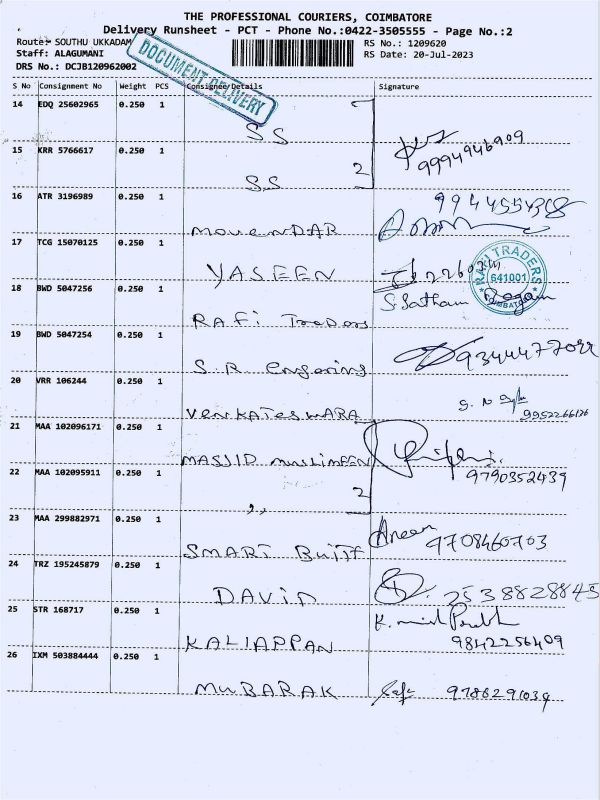 THE PROFESSIONAL COURIERS, COIMBATORE
Delivery Runsheet - PCT - Phone No.:0422-3505555 - Page No.:2
Route:- SOUTHU UKKADAM
RS No.: 1209620
Staff: ALAGUMANI
RS Date: 20-Jul-2023
DRS No.: DCJB120962002
DOCUMENT DELIVERY
S No Consignment No Weight PCS Consignee/Details Signature
14 EDQ 25602965 0.250 1
SS
15 KRR 5766617 0.250 1
9994946909
2
SS
16 ATR 3196989 0.250 1
MOVENDAR
17 TCG 15070125 0.250 1
YASEEN
RAFI TRADERS
641001
COIMBATORE
18 BWD 5047256 0.250 1
S. Satham
RAFI Traders
19 BWD 5047254 0.250 1
S. R
20 VRR 106244 0.250 1
9952266136
VENKATESWARA
21 MAA 102096171 0.250 1
MASJID MUSLIMEEN
22 MAA 102095911 0.250 1
9790352439
2
,,
23 MAA 299882971 0.250 1
9708460703
SMART
24 TRZ 195245879 0.250 1
DAVID
2538828845
25 STR 168717 0.250 1
KALIAPPAN
9842256409
26 IXM 503884444 0.250 1
MUBARAK